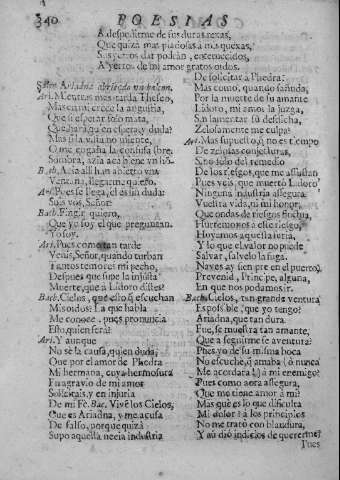 340 POESIAS
A despedirme de sus duras rexas,
Que quizà mas piadosas à mis quexas,
Sus yerros dar podràn, enternecidos,
A yerros de mi amor gratos oidos.
Sale Ariadna abriendo un balcon.
Ari. Mientras mas tarda Theseo,
Mas en mi crece la angustia,
Que si esperar solo mata,
Que harà, que en espera, y duda?
Mas si la vista no miente,
O me engaña la confusa sombra,
Sombra, àzia acà viene un hombre.
Bach. Azia allì han abierto una
Ventana, llegarme quiero.
Ari. Pues se llega, èl es sin duda:
Sois vos, Señor?
Bach. Fingir quiero,
Que yo soy el que preguntan.
Yo soy.
Ari. Pues como tan tarde
Venis, Señor, quando turban
Tantos temores mi pecho,
Despues que supe la injusta
Muerte, que à Lidoro distes?
Bach. Cielos, què esto que escuchan
Mis oidos! La que habla
Me conoce, pues pronuncia
Esso, quien serà?
Ari. Y aunque
No sè la causa, quien duda,
Que por el amor de Phedra
Mi hermana, cuya hermosura
Fu agravio de mi amor
Solicitais, y en injuria
De mi Fè. Bac. Vive los Cielos,
Que es Ariadna, y me acusa
De falso, porque quizà
Supo aquella necia industria
De solicitar à Phedra!
Mas como, quando sañuda,
Por la muerte de su amante
Lidoro, mi amor la juzga,
Sin lamentar su desdicha,
Zelosamente me culpa?
Ari. Mas supuesto, que no es tiempo
De zelosas conjeturas,
Sino solo del remedio
De los riesgos, que me assustan
Pues veis, que muerto Lidoro
Ninguna industria assegura
Vuestra vida, ni mi honor,
Que ondas de riesgos fluctua,
Hurtemonos à esse riesgo,
Huyamos aquesta furia,
Y lo que el valor no puede
Salvar, salvelo la fuga.
Naves ay siempre en el puerto,
Prevenid, Principe, alguna,
En que nos podamos ir.
Bach. Cielos, tan grande ventura
Es possible, que yo tengo?
Ariadna, que tan dura
Fue, se muestra tan amante,
Que a seguirme se aventura?
Pues yo de su misma boca
No escuchè, q amaba (ò nunca
Me acordara!) à mi enemigo?
Pues como aora assegura,
Que me tiene amor à mi?
Mas què es lo que dificulta
Mi dolor! à los principios
No me tratò con blandura,
Y aù diò indicios de quererme?
Pues